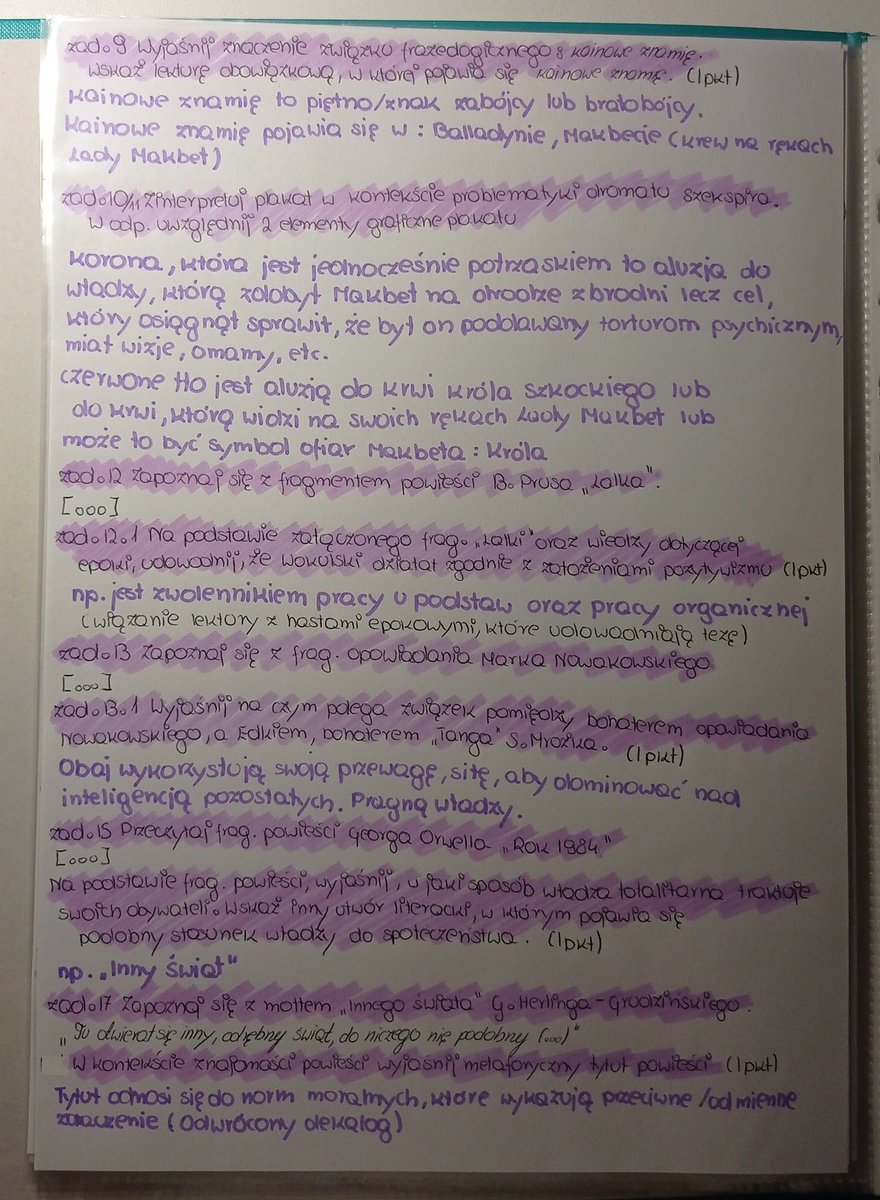 zad.9 Wyjaśnij znaczenie związku frazeologicznego: kainowe znamię.
Wskaż lekturę obowiązkową, w której pojawia się kainowe znamę. (1pkt)
Kainowe znamię to piętno/znak zabójcy lub bratobójcy.
Kainowe znamię pojawia się w: Balladynie, Makbecie (krew na rękach
Lady Makbet)
zad.10/11 Zinterpretuj plakat w kontekście problematyki dramatu Szekspira.
W odp. uwzględnij 2 elementy graficzne plakatu
Korona, która jest jednocześnie potrzaskiem to aluzja do
władzy, którą zdobył Makbet na drodze zbrodni lecz cel,
który osiągnął sprawił, że był on poddawany torturom psychicznym,
miał wizje, omamy, etc.
Czerwone tło jest aluzją do krwi króla szkockiego lub
do krwi, którą widzi na swoich rękach Lady Makbet lub
może to być symbol ofiar Makbeta: Króla
zad.12 Zapoznaj się z fragmentem powieści B. Prusa „Lalka".
[...]
zad.12.1 Na podstawie załączonego frag. „Lalki" oraz wiedzy dotyczącej
epoki, udowodnij, że Wokulski działał zgodnie z założeniami pozytywizmu (1pkt)
np. jest zwolennikiem pracy u podstaw oraz pracy organicznej
(wiązanie lektury z hasłami epokowymi, które udowadniają tezę)
zad.13 Zapoznaj się z frag. opowiadania Marka Nowakowskiego
[...]
zad.13.1 Wyjaśnij na czym polega związek pomiędzy bohaterem opowiadania
Nowakowskiego, a Edkiem, bohaterem „Tanga" S. Mrożka.
(1pkt)
Obaj wykorzystują swoją przewagę, siłę, aby dominować nad
inteligencją pozostałych. Pragną władzy.
zad.15 Przeczytaj frag. powieści Georga Orwella „Rok 1984"
[...]
Na podstawie frag. powieści, wyjaśnij, w jaki sposób władza totalitarna traktuje
swoich obywateli. Wskaż inny utwór literacki, w którym pojawia się
podobny stosunek władzy do społeczeństwa. (1pkt)
np. „Inny Świat"
zad.17 Zapoznaj się z mottem „Innego świata" G. Herlinga-Grudzińskiego.
„Tu otwierał się inny, odrębny świat, do niczego nie podobny (...)"
W kontekście znajomości powieści wyjaśnij metaforyczny tytuł powieści (1pkt)
Tytuł odnosi się do norm moralnych, które wykazują przeciwne/odmienne
znaczenie (Odwrócony dekalog)